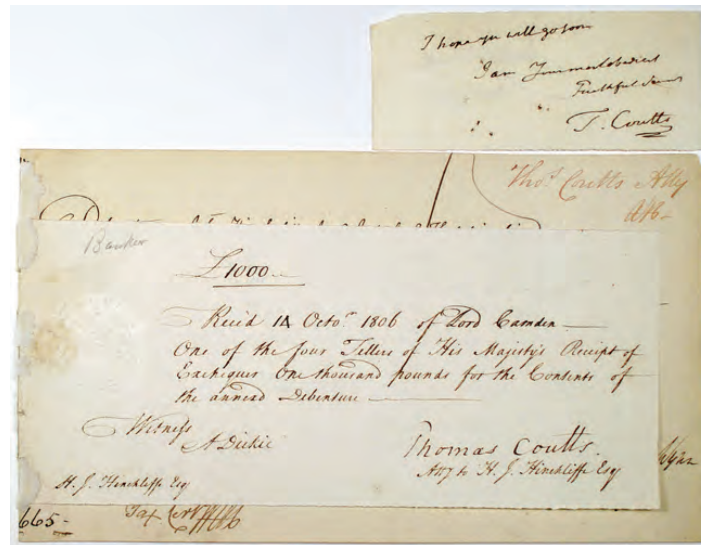 I hope you will go soon
I am Your most obedient
Faithful
T. Coutts
Thos Coutts Atty
Banker
£1000
Receid 14 Octor 1806 of Lord Camden
One of the four Tellers of His Majesty's Receipt of
Exchequer One thousand pounds for the Contents of
the annexd Debenture
Witness
A Dickie
Thomas Coutts.
Atty to H. J. Hinchliffe Esq
H. J. Hinchliffe Esq
665-